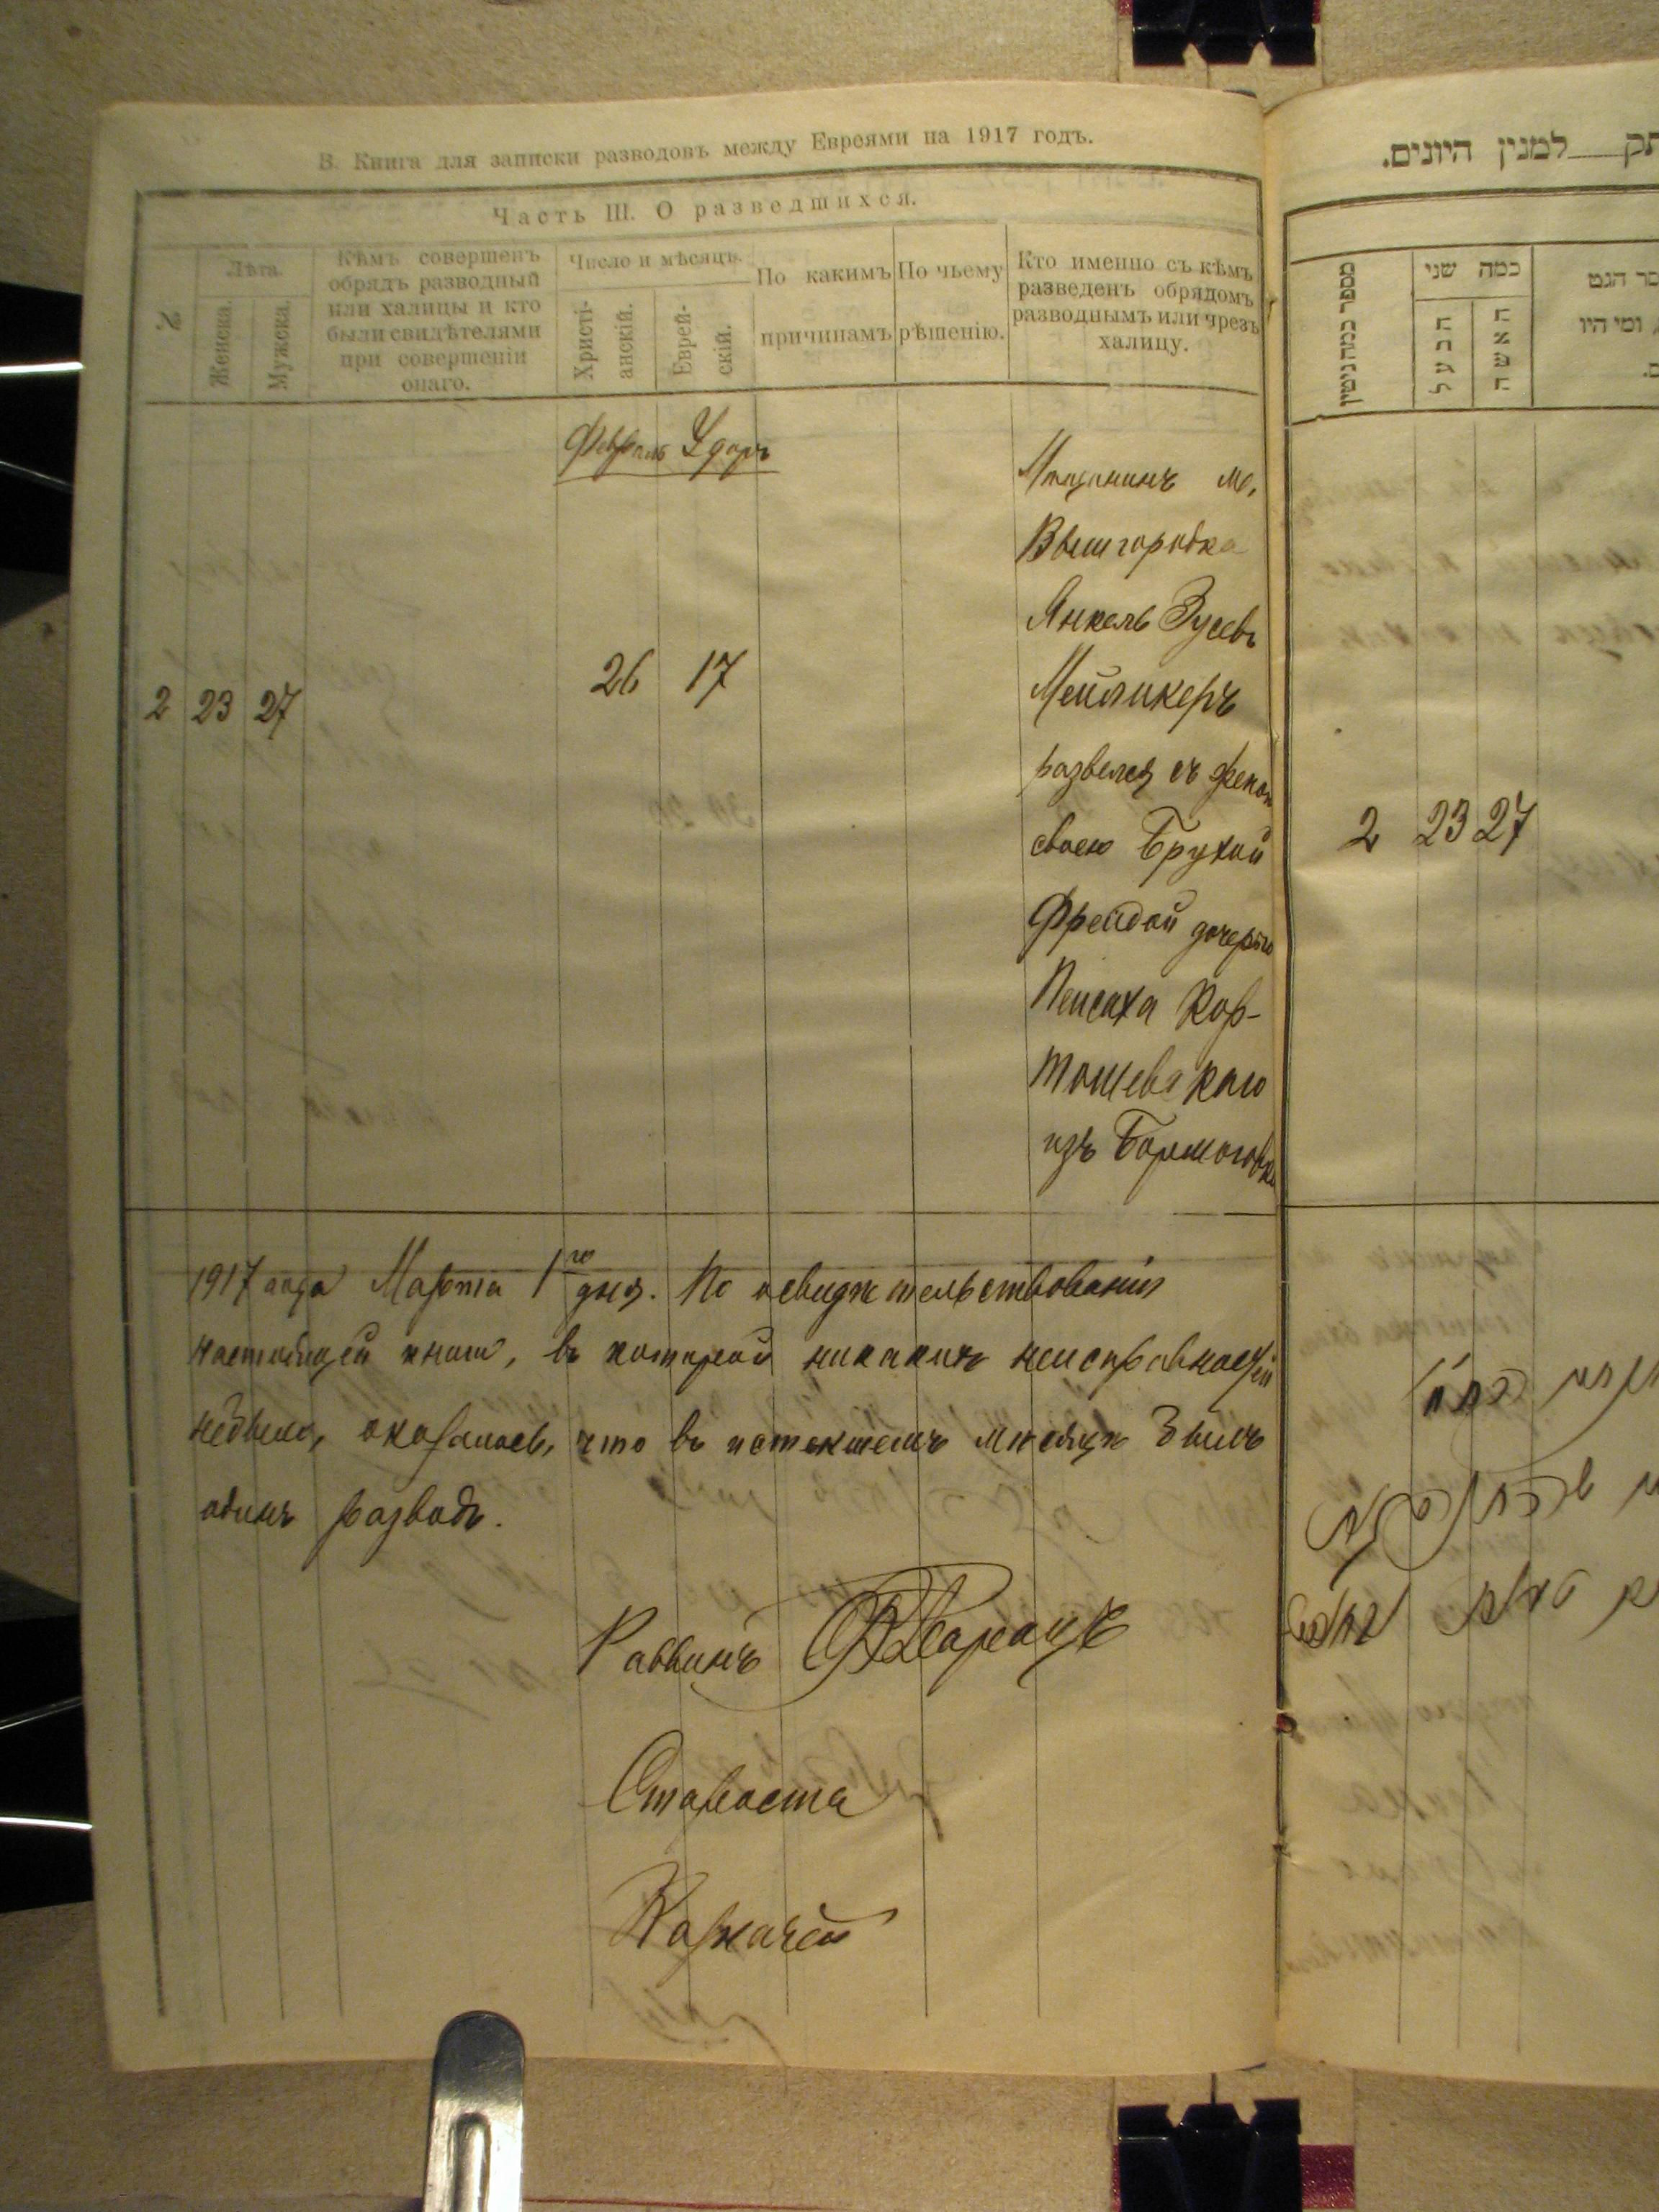 В. Книга для записки разводовъ между Евреями на 1917 годъ.
Часть III. О разведшихся.
№
Лѣта.
Женска.
Мужска.
Кѣмъ совершенъ
обрядъ разводный
или халицы и кто
были свидѣтелями
при совершеніи
онаго.
Число и мѣсяцъ.
Христі-
анскій.
Еврей-
скій.
По какимъ
причинамъ
По чьему
рѣшенію.
Кто именно съ кѣмъ
разведенъ обрядомъ
разводнымъ или чрезъ
халицу.
Февраль Ударъ
Мѣщанинъ м.
Вышгородка
Янкель Зусевъ
2 23 27 26 17 Мейликеръ
развелся съ женою
своею Брухой
Фрейдой дочерью
Пейсаха Кор-
ташевскаго
изъ
1917 года Марта 1го дня. По освидѣтельствованіи
настоящей книги, въ которой никакихъ неисправностей
небыло, оказалось, что въ истекшемъ мѣсяцѣ былъ
одинъ разводъ.
Раввинъ
Староста
Казначей
למנין היונים.
מספר כמה גיטין
כמה שני
הבעל
האשה
סר הגט
ומי היו
2 23 27